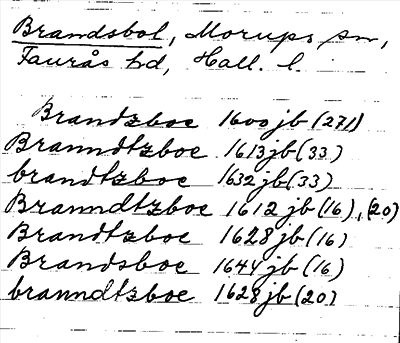 Brandsbol, Morups sn,
Faurås hd, Hall. l.
Brandzboe 1600 jb (271)
Branndtzboe 1613 jb (33)
brandtzboe 1632 jb (33)
Branndtzboe 1612 jb (16), (20)
Brandtzboe 1628 jb (16)
Brandsboe 1644 jb (16)
branndtzboe 1628 jb (20)